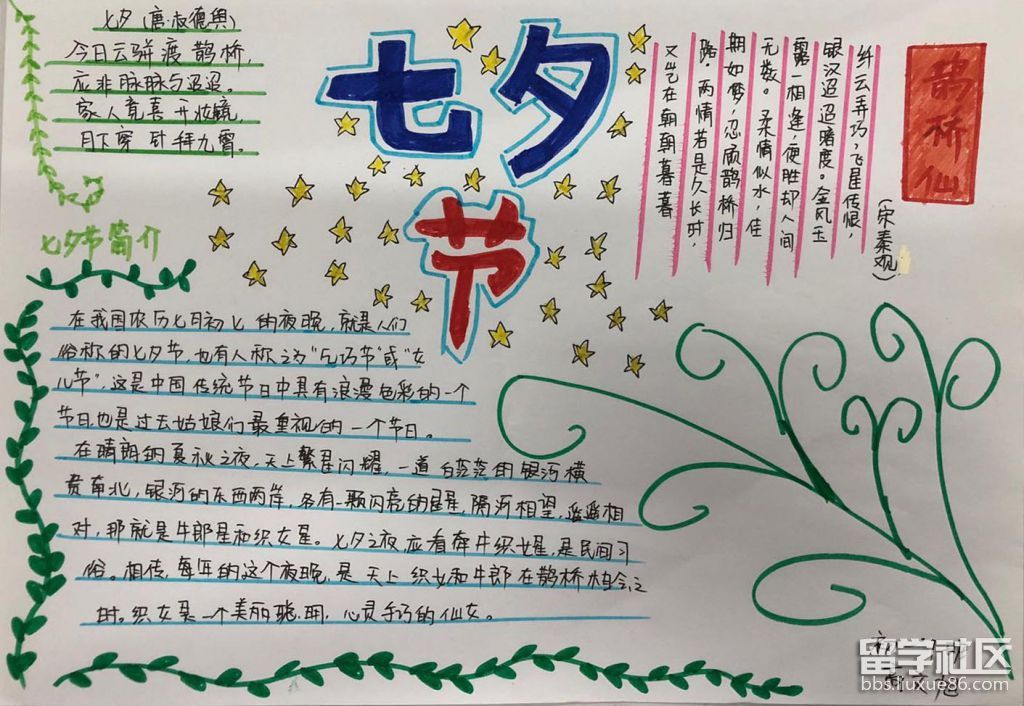 七夕(唐·权德舆)
今日云骈渡鹊桥,
应非脉脉与迢迢。
家人竟喜开妆镜,
月下穿针拜九霄。
七夕节
鹊桥仙
(宋秦观)
纤云弄巧,飞星传恨,
银汉迢迢暗度。金风玉
露一相逢,便胜却人间
无数。柔情似水,佳
期如梦,忍顾鹊桥归
路。两情若是久长时,
又岂在朝朝暮暮
七夕节简介
在我国农历七月初七的夜晚,就是人们
俗称的七夕节,也有人称之为"乞巧节"或"女
儿节",这是中国传统节日中具有浪漫色彩的一个
节日,也是过去姑娘们最重视的一个节日。
在晴朗的夏秋之夜,天上繁星闪耀,一道白茫茫的银河横
贯南北,银河的东西两岸,各有一颗闪亮的星星,隔河相望,遥遥相
对,那就是牛郎星和织女星。七夕之夜,应看牵牛织女星,是民间习
俗。相传,每年的这个夜晚,是天上织女和牛郎在鹊桥相会之
时。织女是一个美丽聪明,心灵手巧的仙女。
留学社区
bbs.liuxue86.com